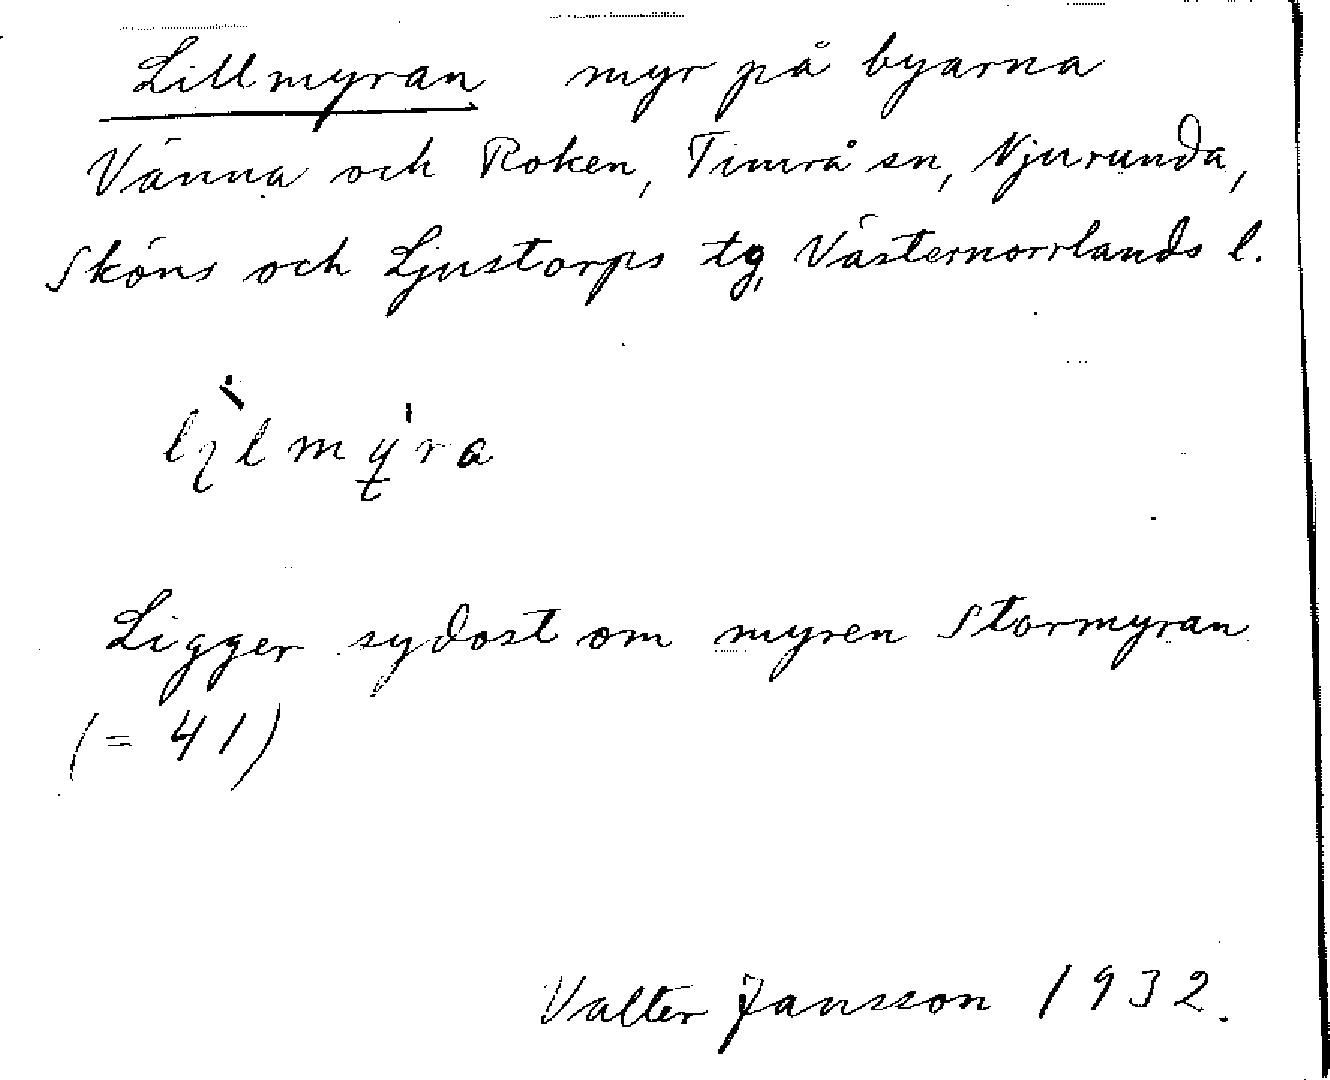 Lillmyran myr på byarna
Vänna och Roken, Timrå sn, Njurunda,
Sköns och Ljustorps tg, Västernorrlands l.
Ligger sydost om myren Stormyran
(= 41)
Valter Jansson 1932.